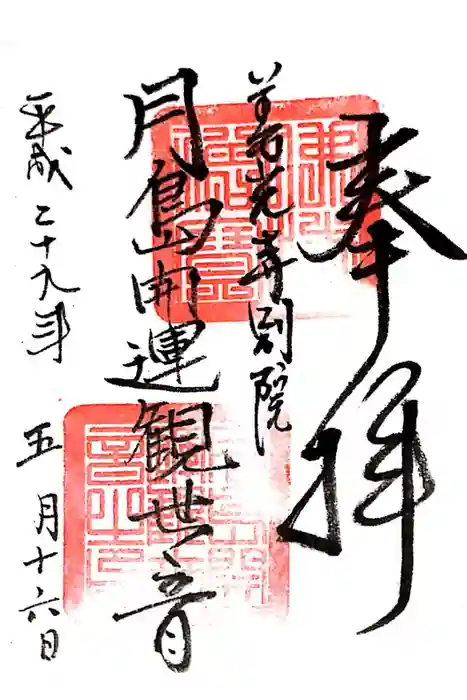 奉拝
善光寺別院
月島開運観世音
平成二十九年 五月十六日